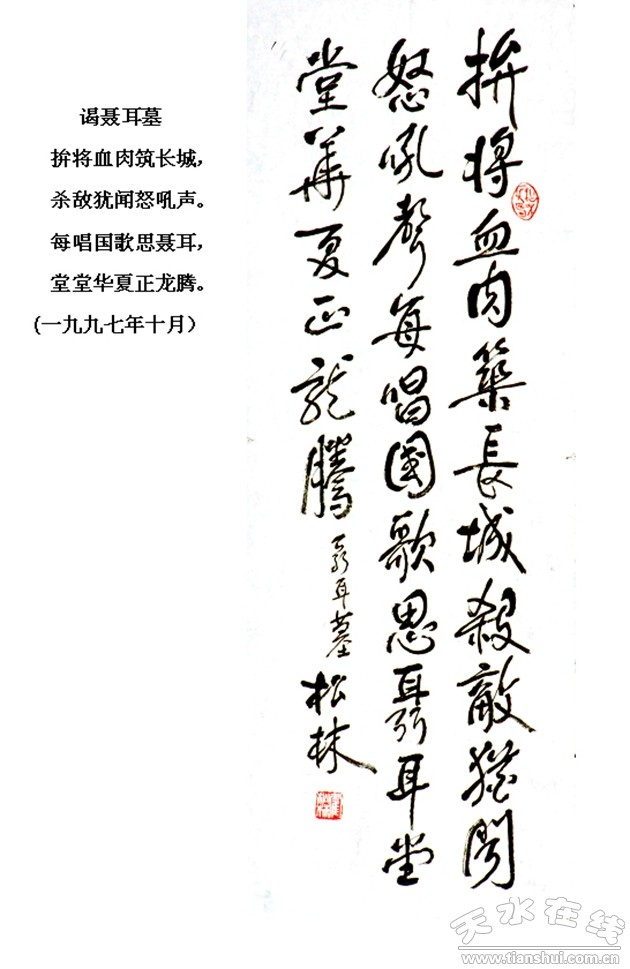 谒聂耳墓
拚将血肉筑长城，
杀敌犹闻怒吼声。
每唱国歌思聂耳，
堂堂华夏正龙腾。
(一九九七年十月）
拚將血肉築長城殺敵猶聞
怒吼聲每唱國歌思聶耳堂
堂華夏正龍騰
聶耳墓
松林
天水在线
www.tianshui.com.cn